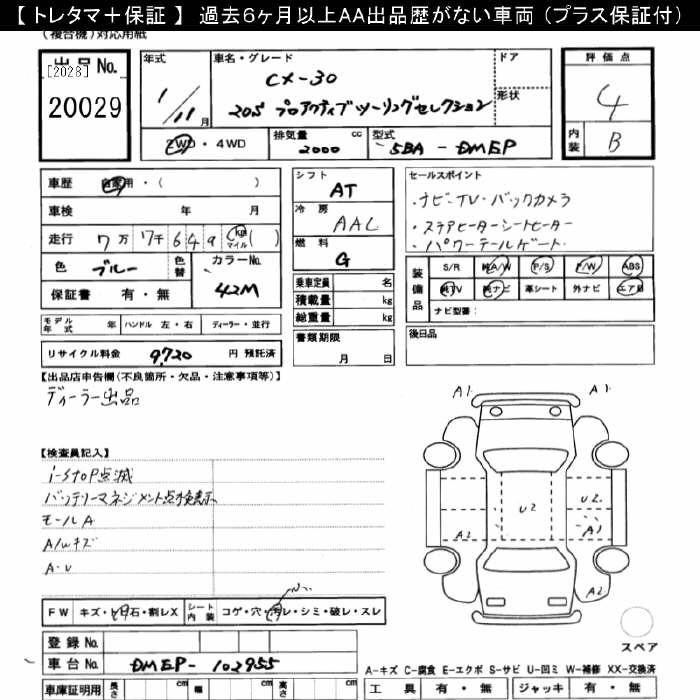 【トレタマ＋保証】 過去6ヶ月以上AA出品歴がない車両（プラス保証付）
(複合機)対応用紙
出品No.
[2028]
20029
年式
1/11月
車名・グレード
CX-30
20S プロアクティブツーリングセレクション
ドア
形状
評価点
4
内装 B
2WD・4WD
排気量 2000 cc
型式 5BA - DMEP
車歴 自家用・( )
車検 年 月
走行 7万7千649 km マイル ( )
色 ブルー
色替
カラーNo. 42M
保証書 有・無
シフト AT
冷房 AAC
燃料 G
乗車定員 名
積載量 kg
総重量 kg
書類期限
月 日
セールスポイント
・ナビ・TV・バックカメラ
・ステアヒーターシートヒーター
・パワーテールゲート・
装備品
S/R 純A/W P/S P/W ABS
純TV 純ナビ 革シート 外ナビ エアB
ナビ型番：
後日品
モデル年式 年 ハンドル 左・右 ディーラー・並行
リサイクル料金 9720 円 預託済
【出品店申告欄(不良箇所・欠品・注意事項等)】
ディーラー出品
【検査員記入】
i-stop点滅
バッテリーマネジメント点検表示
モールA
A/Wキズ
A・U
A1 A1
U2 U2
A2 A1
A2
スペア
FW キズ・ヒ石・割レX
シート内装 コゲ・穴・汚レ・シミ・破レ・スレ
登録No.
車台No. DMEP-102955
車庫証明用 長さ cm 幅 cm 高さ cm
A-キズ C-腐食 E-エクボ S-サビ U-凹ミ W-補修 XX-交換済
工具 有・無 ジャッキ 有・無